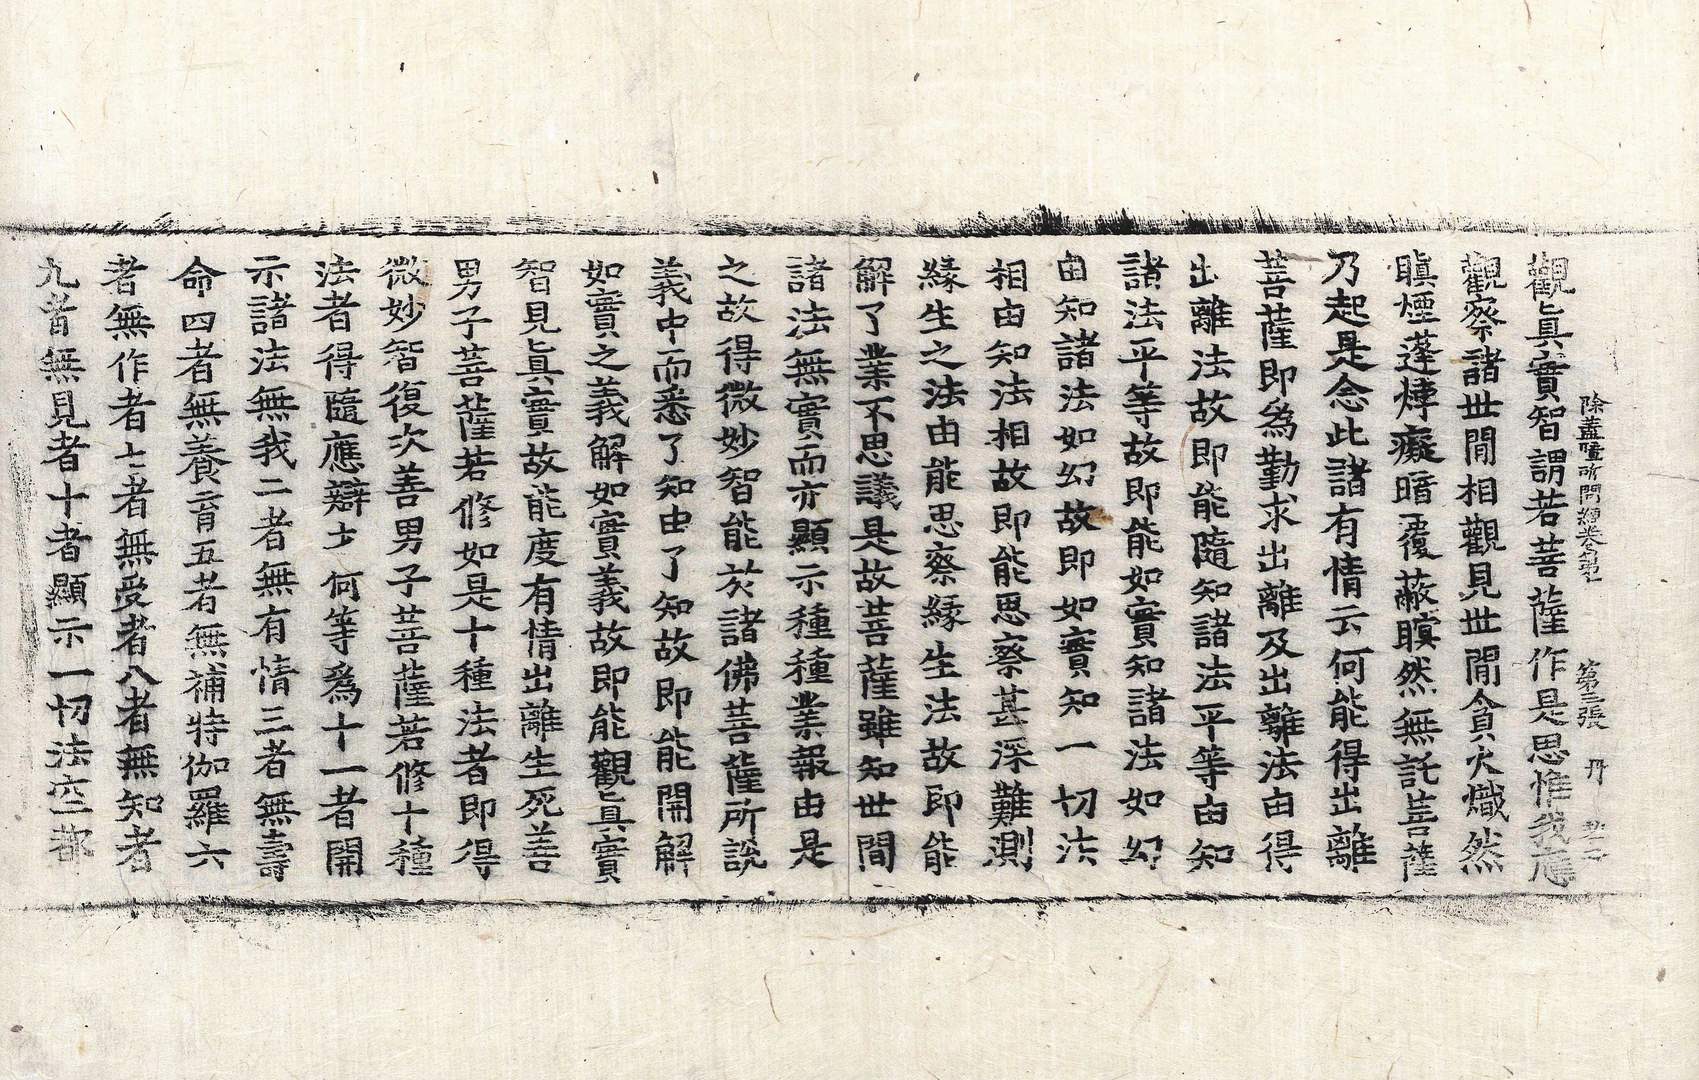 除蓋障所問經卷第七　第三張　丹
觀眞實智謂若菩薩作是思惟我應
觀察諸世間相觀見世間貪火熾然
瞋煙蓬㶿癡暗覆蔽瞑然無託菩薩
乃起是念此諸有情云何能得出離
菩薩即爲勤求出離及出離法由得
出離法故即能隨知諸法平等由知
諸法平等故即能如實知諸法如幻
由知諸法如幻故即如實知一切法
相由知法相故即能思察甚深難測
緣生之法由能思察緣生法故即能
解了業不思議是故菩薩雖知世間
諸法無實而亦顯示種種業報由是
之故得微妙智能於諸佛菩薩所說
義中而悉了知由了知故即能開解
如實之義解如實義故即能觀眞實
智見眞實故能度有情出離生死善
男子菩薩若修如是十種法者即得
微妙智復次善男子菩薩若修十種
法者得隨應辯才何等爲十一者開
示諸法無我二者無有情三者無壽
命四者無養育五者無補特伽羅六
者無作者七者無受者八者無知者
九者無見者十者顯示一切法空都